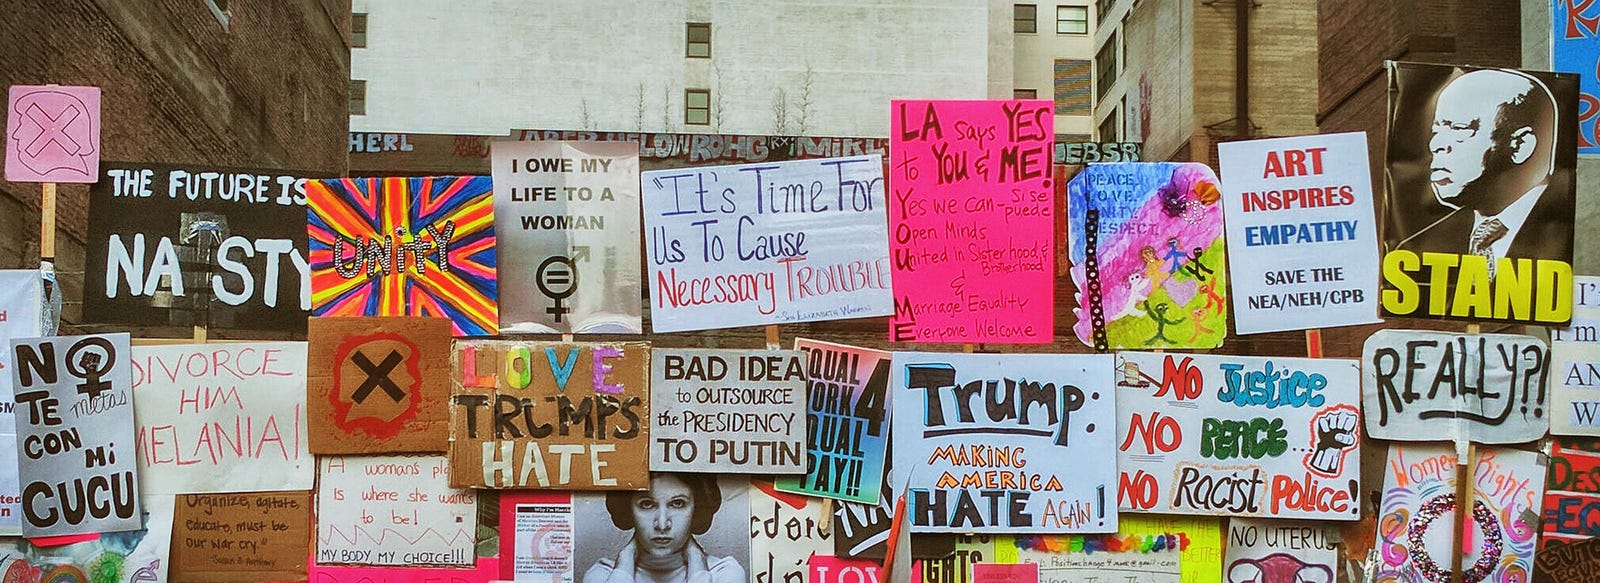 THE FUTURE IS
NASTY
UNITY
I OWE MY
LIFE TO A
WOMAN
"It's Time For
Us To Cause
Necessary Trouble
- Sen Elizabeth Warren
LA says YES
to YOU & ME!
Yes we can - Si se
puede
Open Minds
United in Sisterhood &
Brotherhood
&
Marriage Equality
Everyone Welcome
PEACE
LOVE
UNITY
RESPECT
ART
INSPIRES
EMPATHY
SAVE THE
NEA/NEH/CPB
STAND
NO
TE metas
CON
Mi
CUCU
DIVORCE
HIM
MELANIA!
LOVE
TRUMPS
HATE
BAD IDEA
to OUTSOURCE
the PRESIDENCY
TO PUTIN
EQUAL
WORK
4
EQUAL
PAY!!
Trump:
MAKING
AMERICA
HATE AGAIN!
NO Justice
NO PEACE...
NO Racist Police!
REALLY?!
Organize, agitate,
educate, must be
our war cry."
Susan B Anthony
A woman's pla
Is where she wants
to be!
MY BODY, MY CHOICE!!!
NO UTERUS
Women's Rights
LOV